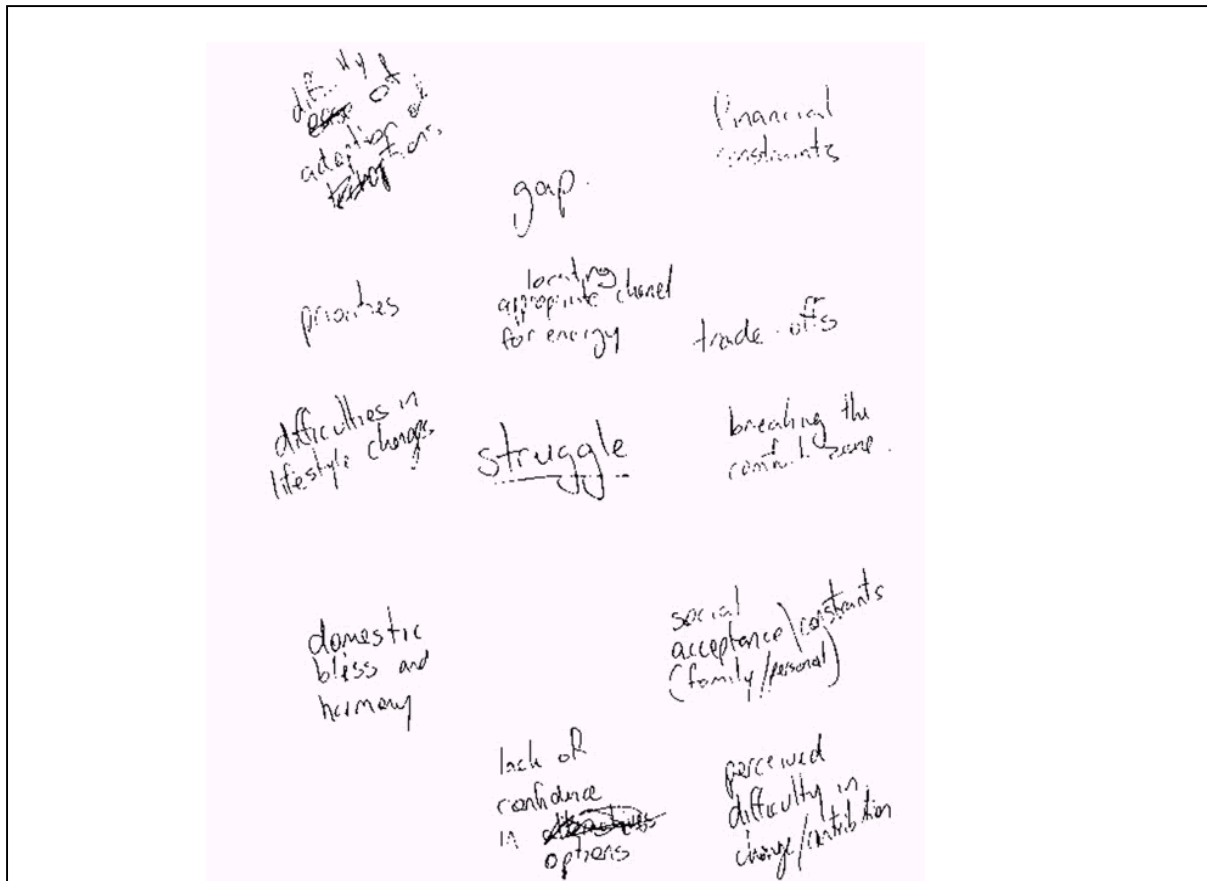 difficulty of
adoption of
options
Financial
constraints
gap.
priorities
locating
appropriate channel
for energy
trade-offs
difficulties in
lifestyle changes
struggle
breaking the
comfort zone.
domestic
bliss and
harmony
social
acceptance\constraints
(family/personal)
lack of
confidence
in
options
perceived
difficulty in
change/contribution